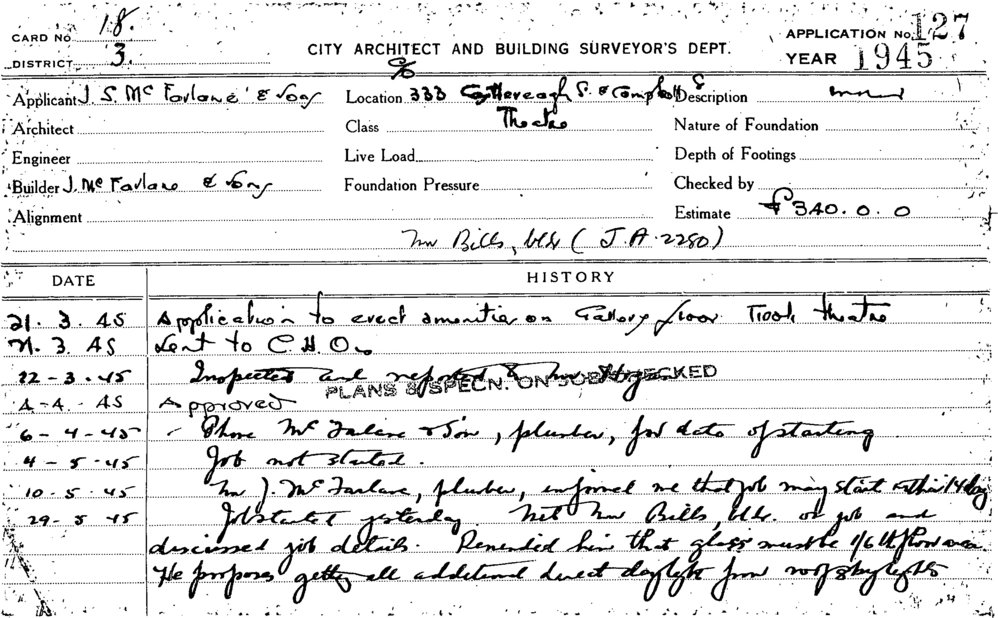 CARD No. 18.
DISTRICT 3.
CITY ARCHITECT AND BUILDING SURVEYOR'S DEPT.
APPLICATION No. 127
YEAR 1945
Applicant J. S. Mc Farlane & Sons
Location c/o 333 Castlereagh S. & Campbell S
Description
Architect
Class Theatre
Nature of Foundation
Engineer
Live Load
Depth of Footings
Builder J. Mc Farlane & Sons
Foundation Pressure
Checked by
Alignment
Estimate £340.0.0
Mr Bills, bldr (J.A. 2280)
DATE
HISTORY
21. 3. 45 Application to erect amenities on Gallery floor Tivoli theatre
21. 3. 45 Sent to C.H.O.
22-3-45 Inspected and reported
PLANS & SPECN. ON JOB CHECKED
4-4-45 Approved
6-4-45 Phone Mc Farlane & Son, plumber, for date of starting
4-5-45 Job not started.
10-5-45 Mr J. Mc Farlane, plumber, informed me that job may start within 14 days
29-5-45 Job started yesterday. Met Mr Bills, bldr. on job and
discussed job details. Reminded him that glass must be 1/6 th floor area.
He proposes getting all additional direct daylight from roof skylights